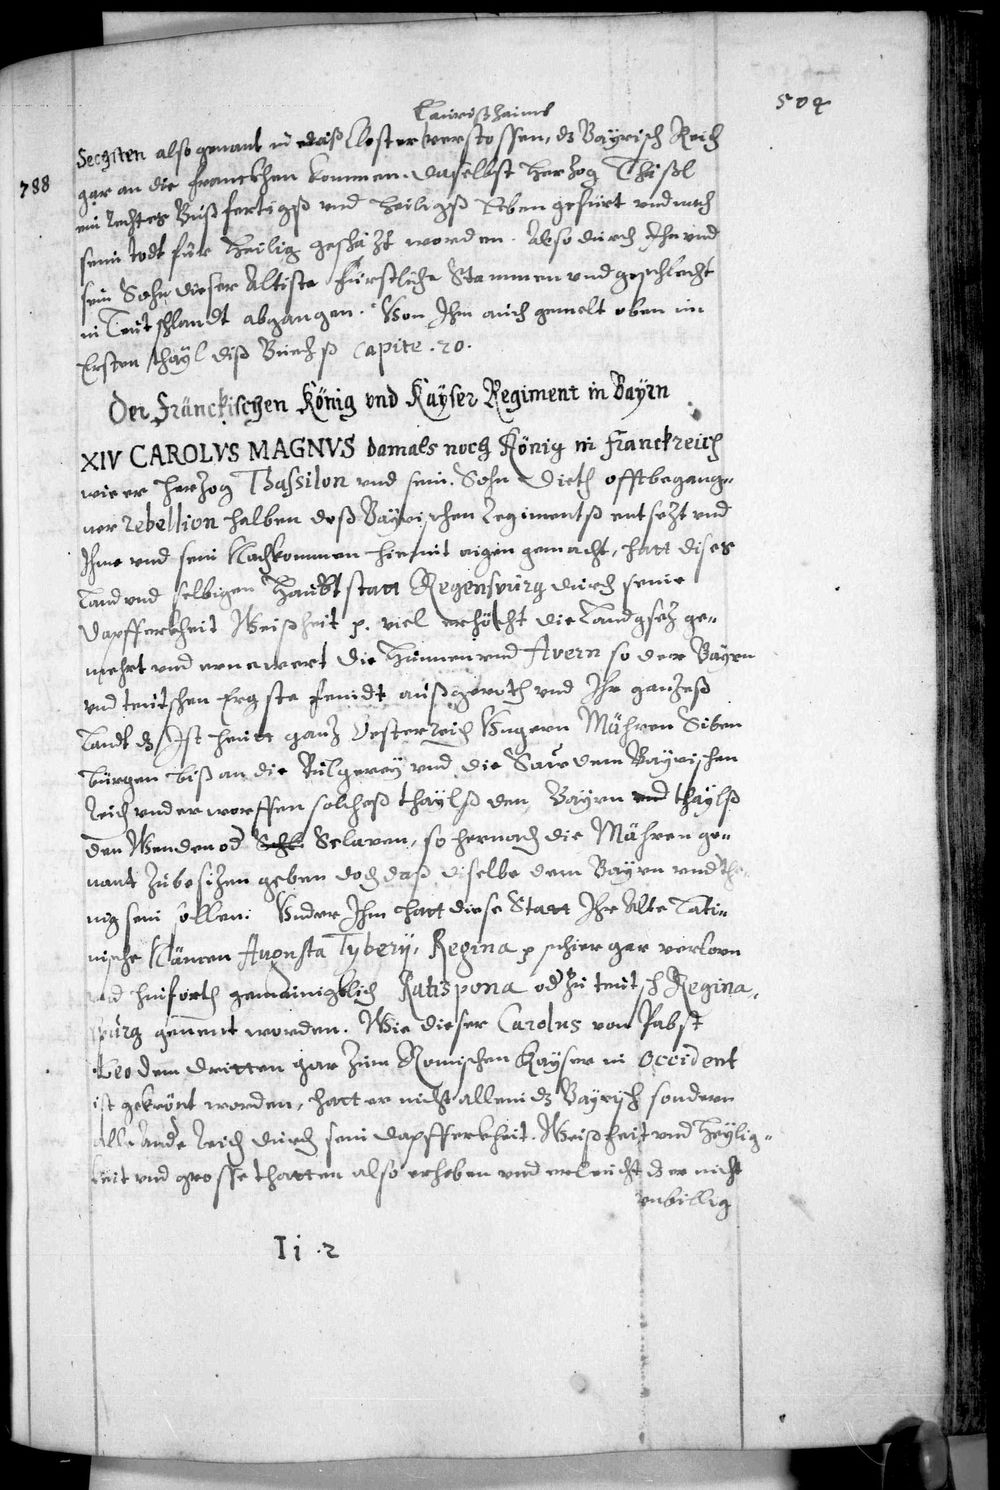 504
Laurißhaims
Sechsten also genant in Closter verstossen, dz Bayrisch Reich
788
gar an die Franckhen kommen. daselbst Herzog Thaßl
ein rechtes Bußfertigß vnd heiligß leben gefürt vnd nach
seim todt für heilig geschäzt worden. Also durch Ihn vnd
sein Sohn dieser Altiste fürstliche Stammen vnd geschlecht
in Teutschlandt abgangen. Von Ihm auch gemelt oben im
Ersten thayl diß Buechß capite .20.
Der Fränckischen König vnd Kayser Regiment in Bayrn
XIV CAROLVS MAGNVS damals noch König in Franckreich
wie er Herzog Thassilon vnd sein Sohn Dieth offtbegang-
ner rebellion halben deß Bayrischen Regimentß entsezt vnd
Ihme vnd sein Nachkommen hiemit aigen gemacht, hatt dises
Land vnd selbigen Haubtstatt Regenspurg durch seine
Dapfferkheit Weißheit p. viel erhöcht die Landgsez ge-
mehrt vnd ernewert die Hunnen vnd Avern so der Bayrn
vnd teutschen Ergste feindt außgeroth vnd Ihr ganzeß
Landt dz Ist heut ganz Oesterreich Vngern Mähren Siben
bürgen biß an die Bulgerey vnd die Saw dem Bayrischen
reich vnderworffen solcheß thaylß den Bayrn vnd thaylß
den Wenden od Sclaven, so hernach die Mähren ge-
nant zubesizen geben doch daß diselbe dem Bayrn vndthe-
nig sein sollen. Vnder Ihm hatt diese Statt Ihr Alte Lati-
nische Nämen Augusta Tyberij, Regina p schier gar verlorn
vnd hinforth gemainigklich Ratispona od zu teutsch Regina-
purg genent worden. Wie dieser Carolus von Pabst
Leo dem dritten gar zum Romischen Kayser in Occident
ist gekrönt worden, hatt er nicht allein dz Bayrisch sondern
alle ande reich durch sein dapfferkheit. Weißheit vnd Heylig-
keit vnd grosse thatten also erheben vnd erleucht dz er nicht
vnbillig
Ii .2